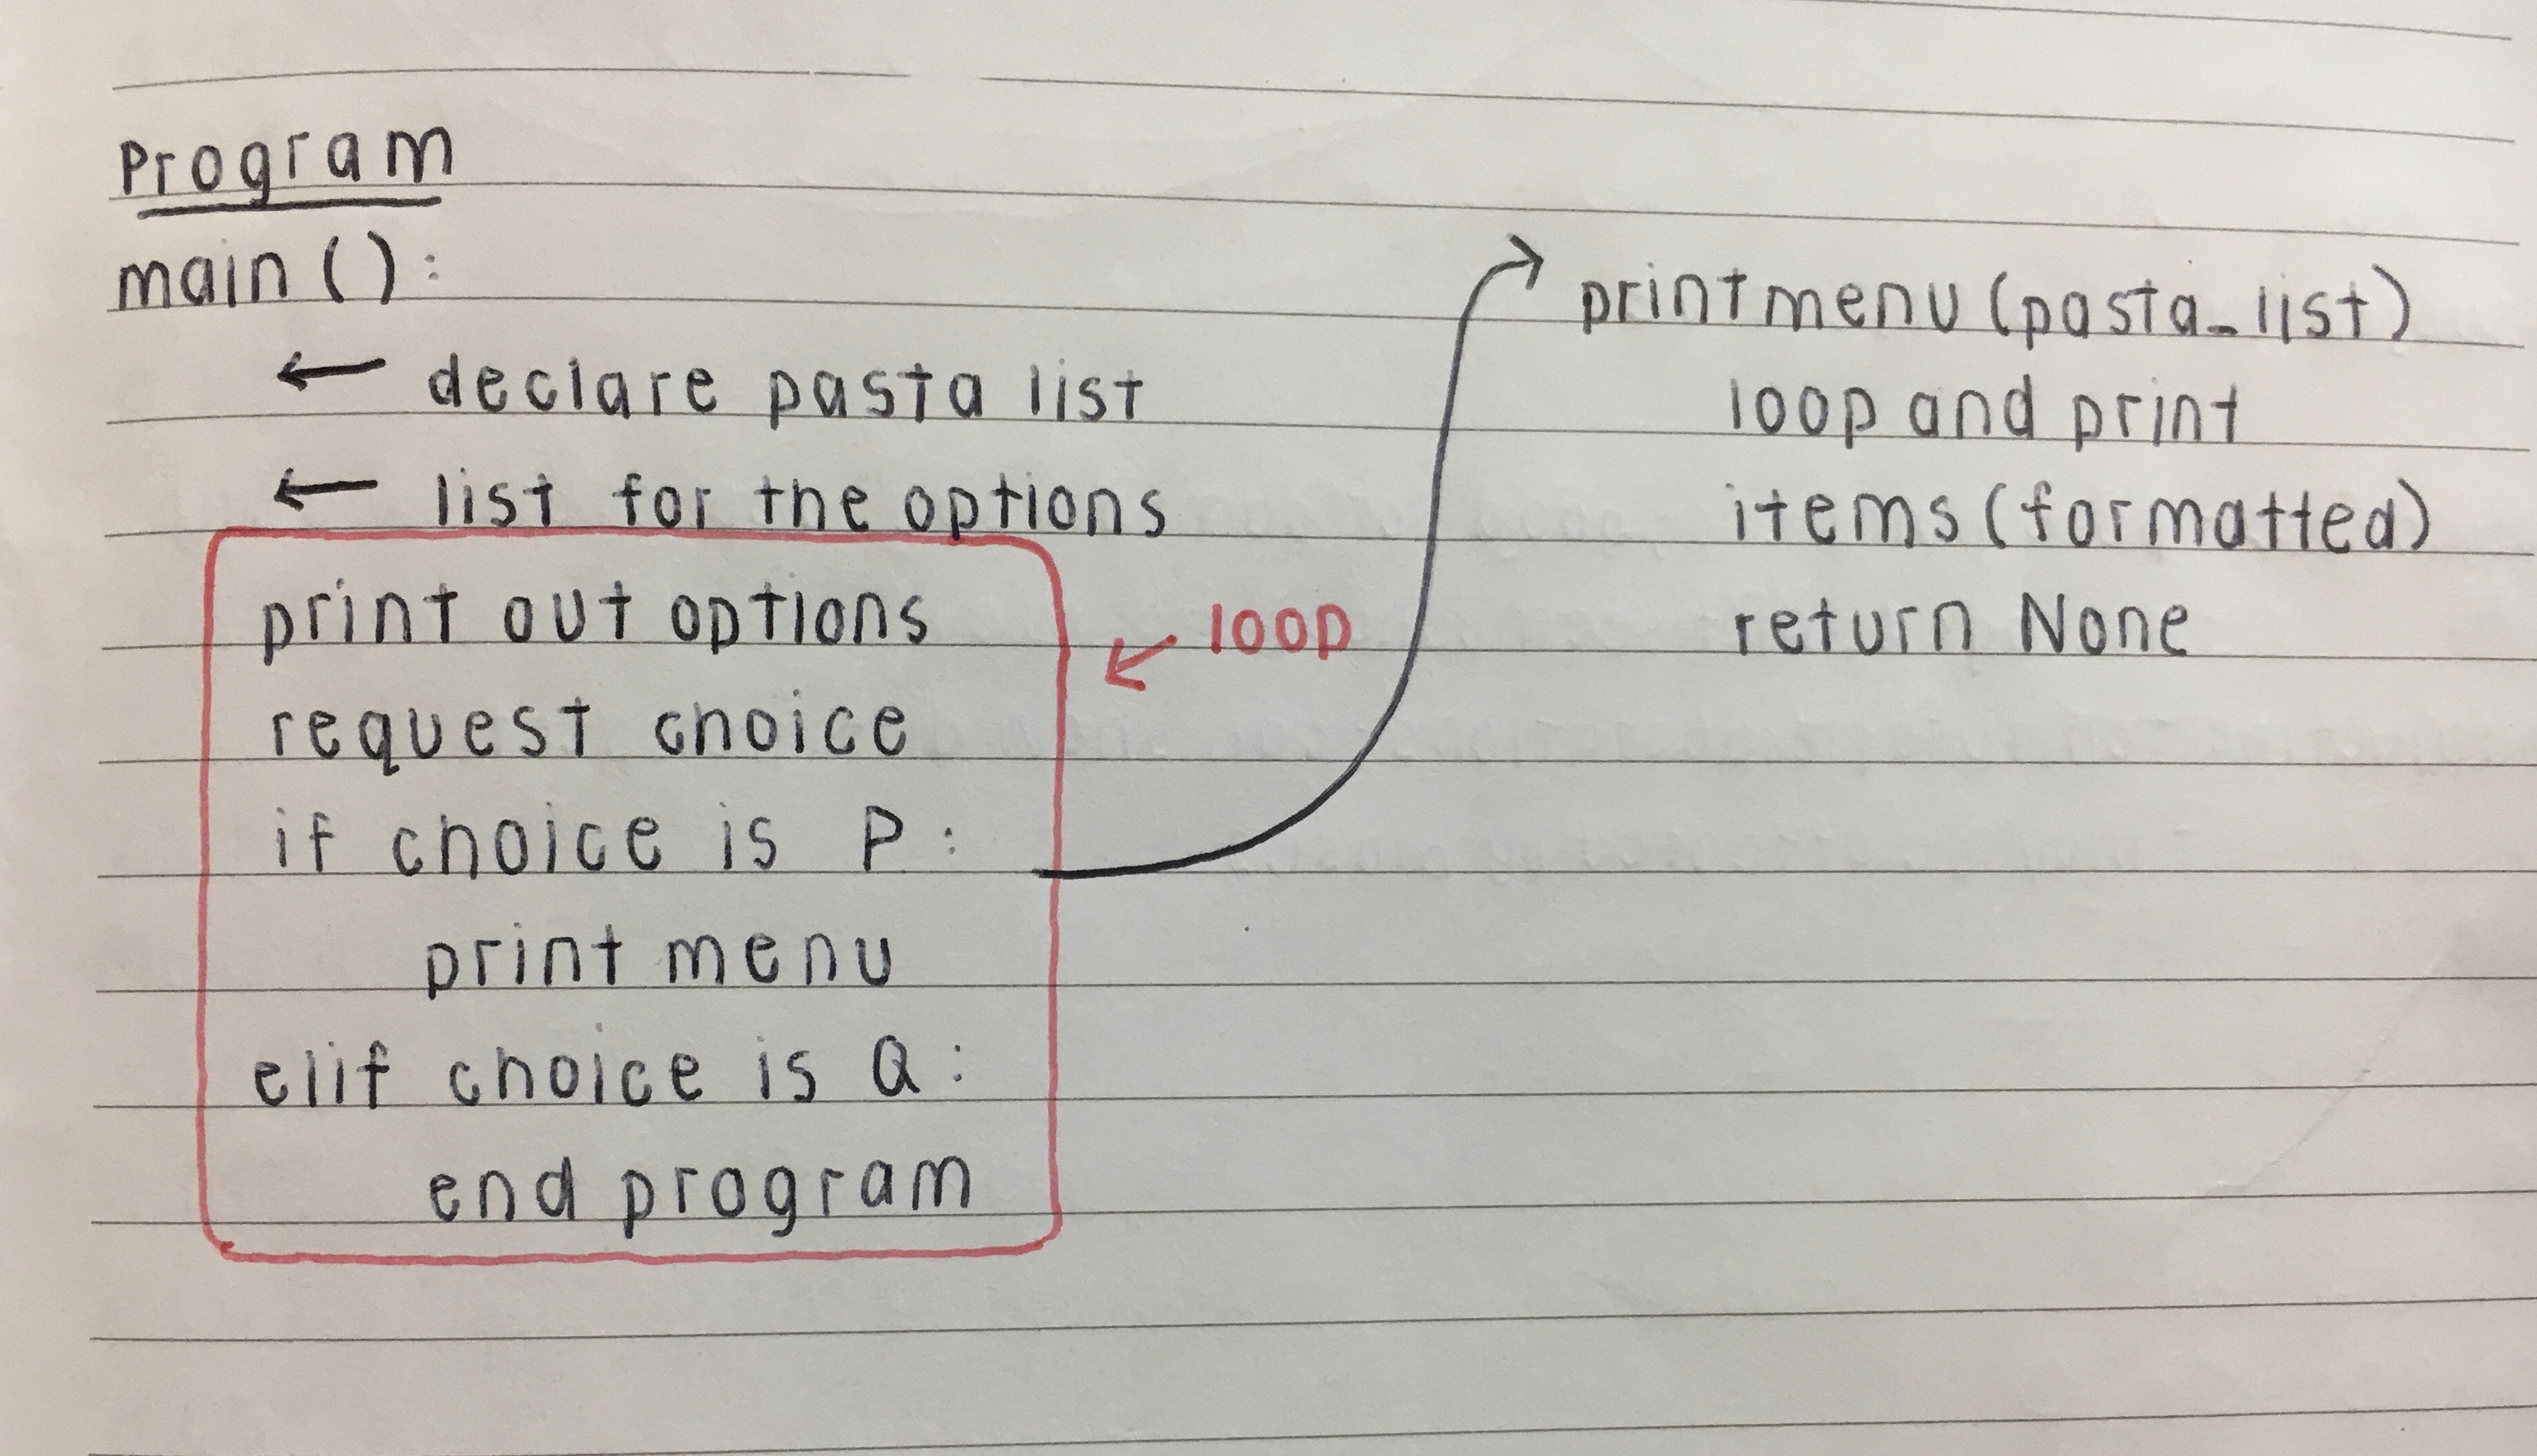 Program
main():
← declare pasta list
← list for the options
print out options
request choice
if choice is P:
print menu
elif choice is Q:
end program
loop
print menu (pasta_list)
loop and print
items (formatted)
return None